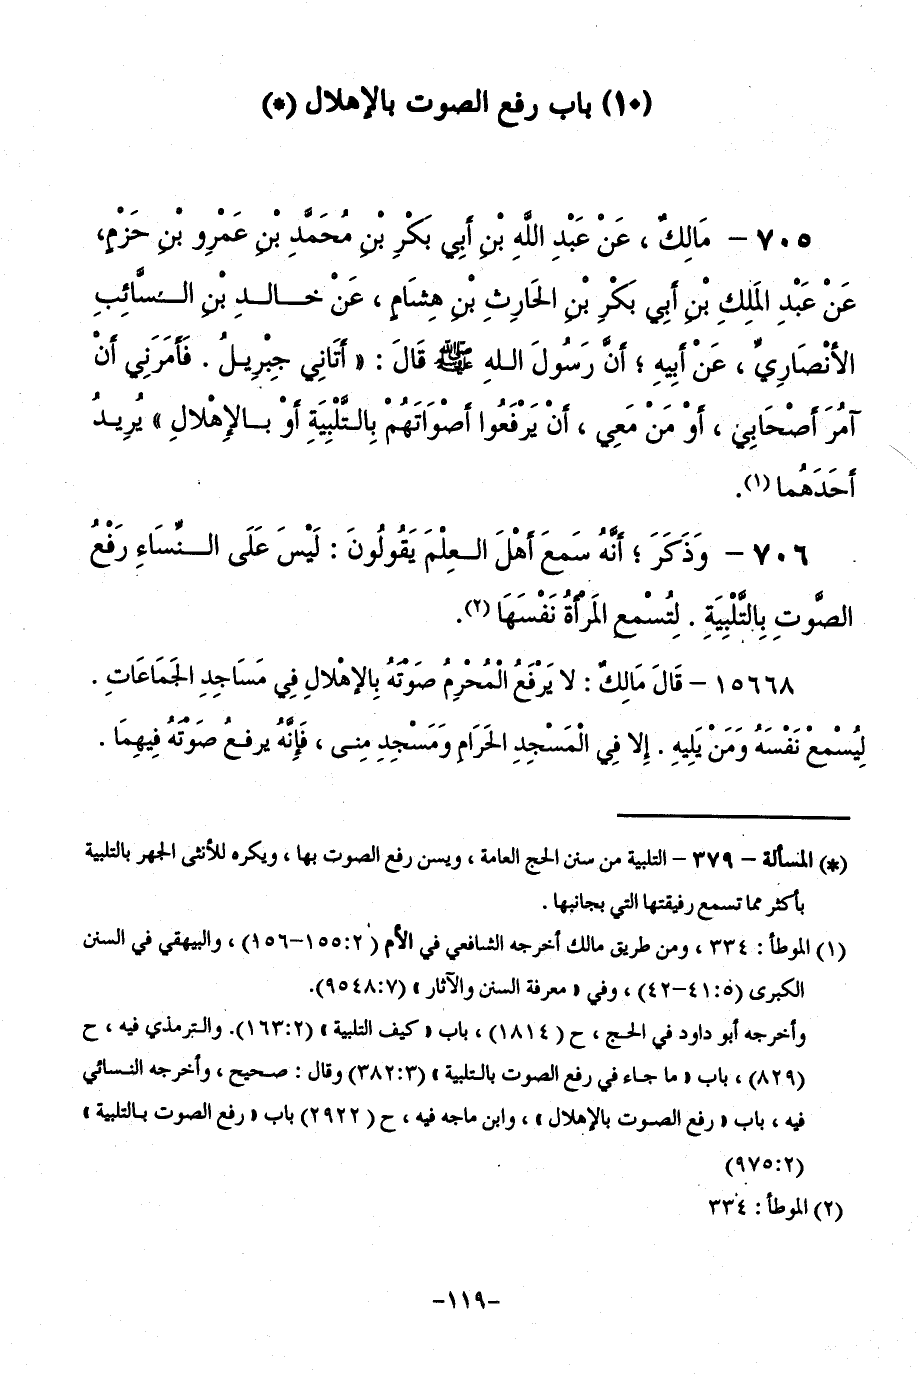 (١٠) باب رفع الصوت بالإهلال (*)
٧٠٥ – مَالِكٌ ، عَنْ عَبْدِ اللَّهِ بْنِ أَبِي بَكْرِ بْنِ مُحَمَّدِ بْنِ عَمْرِو بْنِ حَزْمٍ،
عَنْ عَبْدِ المَلِكِ بْنِ أَبِي بَكْرِ بْنِ الحَارِثِ بْنِ هِشَامٍ ، عَنْ خـالـدِ بْنِ الـسَّائِبِ
الأَنْصَارِيِّ ، عَنْ أَبِيهِ ؛ أَنَّ رَسُولَ اللهِ ﷺ قَالَ : « أَتَانِي جِبْرِيـلُ . فَأَمَرَنِي أَنْ
آمُرَ أَصْحَابِي ، أَوْ مَنْ مَعِي ، أَنْ يَرْفَعُوا أَصْوَاتَهُمْ بِالـتَّلْبِيَةِ أَوْ بـالإِهْلالِ » يُرِيـدُ
أَحَدَهُما (١).
٧٠٦ – وَذَكَرَ ؛ أَنَّهُ سَمِعَ أَهْلَ الـعِلْمِ يَقُولُونَ : لَيْسَ عَلَى الـنِّسَاءِ رَفْعُ
الصَّوتِ بِالتَّلْبِيَةِ . لِتُسْمِعِ المَرْأَةُ نَفْسَهَا (٢).
١٥٦٦٨ – قَالَ مَالِكٌ : لا يَرْفَعُ الْمُحْرِمُ صَوْتَهُ بِالإِهْلالِ فِي مَسَاجِدِ الجَمَاعَاتِ .
لِيُسْمِعْ نَفْسَهُ وَمَنْ يَلِيهِ . إِلا فِي الْمَسْجِدِ الحَرَامِ وَمَسْجِدِ مِنـى ، فَإِنَّهُ يرفـعُ صَوْتَهُ فِيهِمَا .
(*) المسألة – ٣٧٩ – التلبية من سنن الحج العامة ، ويسن رفع الصوت بها ، ويكره للأنثى الجهر بالتلبية
بأكثر مما تسمع رفيقتها التي بجانبها .
(١) الموطأ : ٣٣٤ ، ومن طريق مالك أخرجه الشافعي في الأم (٢:١٥٥–١٥٦) ، والبيهقي في السنن
الكبرى (٥:٤١–٤٢) ، وفي « معرفة السنن والآثار » (٧:٩٥٤٨).
وأخرجه أبو داود في الحج ، ح (١٨١٤) ، باب « كيف التلبية » (٢:١٦٣). والـترمذي فيه ، ح
(٨٢٩) ، باب « ما جـاء في رفع الصوت بالـتلبية » (٣:٣٨٢) وقال : صـحيح ، وأخرجه النـسائي
فيه ، باب « رفع الصـوت بالإهلال » ، وابن ماجه فيه ، ح (٢٩٢٢) باب « رفع الصوت بـالتلبية »
(٢:٩٧٥)
(٢) الموطأ : ٣٣٤
–١١٩–